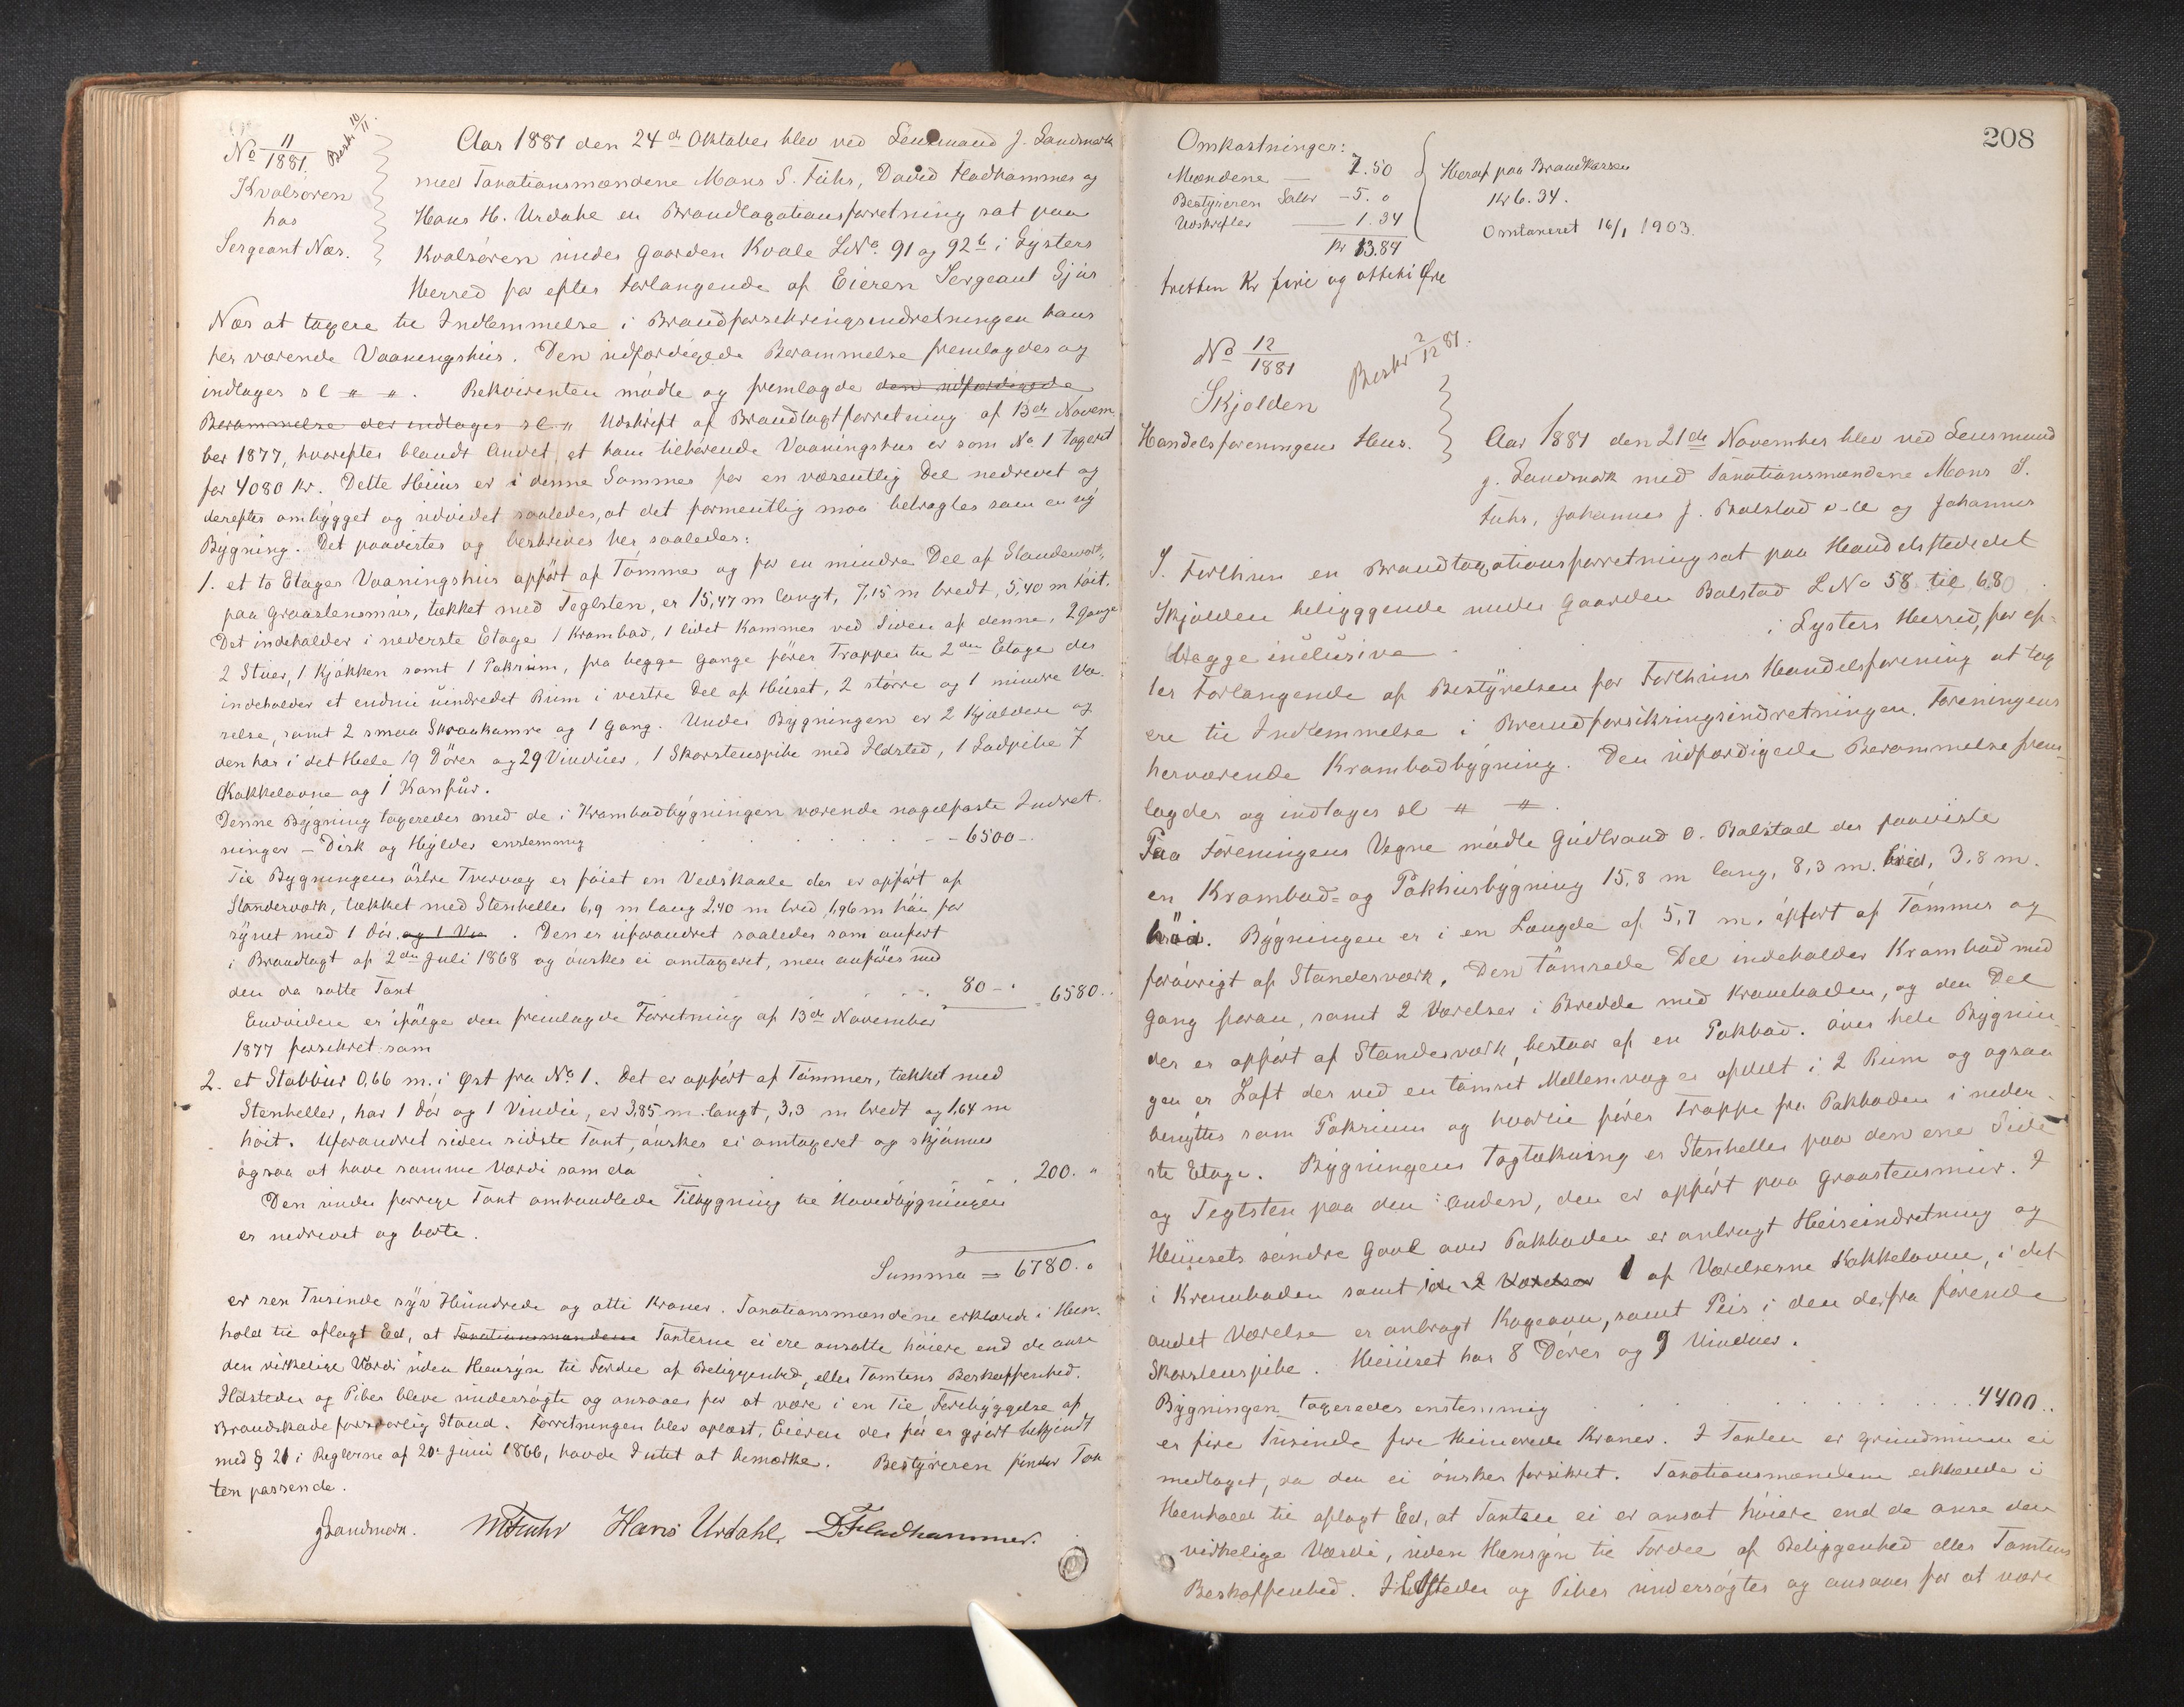 No 11/1881. Beskr 10/11.
Kvalsøren
hos
Sergeant Næs.
Aar 1881 den 24de Oktober blev ved Lensmand J. Landmark
med Taxationsmændene Mons S. Fuhr, David Fladhammer og
Hans H. Urdahl en Brandtaxationsforretning sat paa
Kvalsøren under Gaarden Kvale LNo. 91 og 92b i Lysters
Herred for efter Forlangende af Eieren Sergeant Gjur
Næs at taxere til Indlemmelse i Brandforsikringsindretningen hans
her værende Vaaningshus. Den udfærdigede Berammelse fremlagdes og
indtages sl " ". Rekvirenten mødte og fremlagde den udfærdigede
Berammelse der indtages sl " Udskrift af Brandtaxtforretning af 13de Novem
ber 1877, hvorefter blandt Andet et ham tilhørende Vaaningshus er som No. 1 taxeret
for 4080 Kr. Dette Huus er i denne Sommer for en væsentlig Del nedrevet og
derefter ombygget og udvidet saaledes, at det formentlig maa betragtes som en ny
Bygning. Det paavistes og beskrives her saaledes:
1. et to Etages Vaaningshus opført af Tømmer og for en mindre Del af Standerværk,
paa Graastensmur, tækket med Teglsten, er 15,47 m langt, 7,15 m bredt, 5,40 m høit.
Det indeholder i nederste Etage 1 Krambod, 1 lidet Kammer ved Siden af denne, 2 Gange
2 Stuer, 1 Kjøkken samt 1 Pakrum, fra begge Gange fører Trapper til 2den Etage der
indeholder et endnu uindredet Rum i vestre Del af Huset, 2 større og 1 mindre Væ-
relse, samt 2 smaa Skraakamre og 1 Gang. Under Bygningen er 2 Kjældere og
den har i det Hele 19 Dører og 29 Vinduer, 1 Skorstenspibe med Ildsted, 1 Ladpibe 7
Kakkelovne og 1 Komfur.
Denne Bygning taxeredes med de i Krambodbygningen værende nagelfaste Indret-
ninger – Disk og Hylder enstemmig - 6500 -
Til Bygningens østre Tvervæg er føiet en Vedskaale der er opført af
Standerværk, tækket med Stenheller 6,9 m lang 2,40 m bred 1,96 m høi, for
synet med 1 Dør og 1 Vin. Den er uforandret saaledes som anført
i Brandtaxt af 2den Juli 1868 og ønskes ei omtaxeret, men anføres med
den da satte Taxt 80 - 6580..
Endvidere er ifølge den fremlagde Forretning af 13de November
1877 forsikret som
2. et Stabbur 0,66 m. i Øst fra No. 1. Det er opført af Tømmer, tækket med
Stenheller, har 1 Dør og 1 Vindu, er 3,85 m. langt, 3,3 m bredt og 1,64 m
høit. Uforandret siden sidste Taxt, ønskes ei omtaxeret og skjønnes
ogsaa at have samme Værdi som da 200. "
Den under forrige Taxt omhandlede Tilbygning til Hovedbygningen
er nedrevet og borte.
Summa = 6780. "
er sex Tusinde syv Hundrede og otti Kroner. Taxationsmændene erklærede i Hen-
hold til aflagt Ed, at Taxationsmændene Taxterne ei ere ansatte høiere end de anse
den virkelige Værdi uden Hensyn til Fordel af Beliggenhed, eller Tomtens Beskaffenhed.
Ildsteder og Piber bleve undersøgte og ansaaes for at være i en til Forebyggelse af
Brandskade forsvarlig Stand. Forretningen blev oplæst, Eieren der før er gjort bekjendt
med § 21 i Reglerne af 20de Juni 1866, havde Intet at bemærke. Bestyreren finder Tax
ten passende.
JLandmark. MFuhr Hans Urdahl, DFladhammer.
208
Omkostninger:
Mændene — 7.50
Bestyreren Salær - 5. 0
Udskrifter — 1.34
Kr 13.84
Heraf paa Brandkassen
Kr 6.34.
Omtaxeret 16/1 1903.
tretten Kr fire og otteti Øre
No 12/1881 Beskr 2/12 81.
Skjolden
Handelsforeningens Hus.
Aar 1881 den 21de November blev ved Lensmand
J. Landmark med Taxationsmændene Mons S.
Fuhr, Johannes J. Bolstad og Johannes
S. Forthun en Brandtaxationsforretning sat paa Handelsstedet
Skjolden beliggende under Gaarden Bolstad LNo 58 til 68
begge inclusive i Lysters Herred, for ef-
ter Forlangende af Bestyrelsen for Forthuns Handelsforening at tax
ere til Indlemmelse i Brandforsikringsindretningen. Foreningens
herværende Krambodbygning. Den udfærdigede Berammelse frem-
lagdes og indtages sl " ".
Paa Foreningens Vegne mødte Gudbrand O. Bolstad der paaviste
en Krambod- og Pakhusbygning 15,8 m lang, 8,3 m. bred, 3,8 m.
høi. Bygningen er i en Længde af 5,7 m. opført af Tømmer og
forøvrigt af Standerværk. Den tømrede Del indeholder Krambod med
Gang foran, samt 2 Værelser i Bredde med Kramboden, og den Del
der er opført af Standerværk, bestaar af en Pakbod. Over hele Bygnin-
gen er Loft der ved en tømret Mellemvæg er afdelt i 2 Rum og ogsaa
benyttes som Pakrum og hvortil fører Trappe fra Pakboden i neder-
ste Etage. Bygningens Tagtækning er Stenheller paa den ene Side
og Teglsten paa den anden, den er opført paa Graastensmur. I
Huusets søndre Gavl over Pakboden er anbragt Heiseindretning og
i Kramboden samt i de 2 Værelser 1 af Værelserne Kakkelovne, i det
andet Værelse er anbragt Kogeovn, samt Peis i den derfra førende
Skorstenspibe. Huuset har 8 Døre og 9 Vinduer.
Bygningen taxeredes enstemmig 4400..
er fire Tusinde fire Hundrede Kroner. I Taxten er Grundmuren ei
medtaget, da den ei ønskes forsikret. Taxationsmændene erklærede i
Henhold til aflagt Ed, at Taxten ei er ansat høiere end de anse den
virkelige Værdi, uden Hensyn til Fordel af Beliggenhed eller Tomtens
Beskaffenhed. Ildsteder og Piber undersøgtes og ansaaes for at være